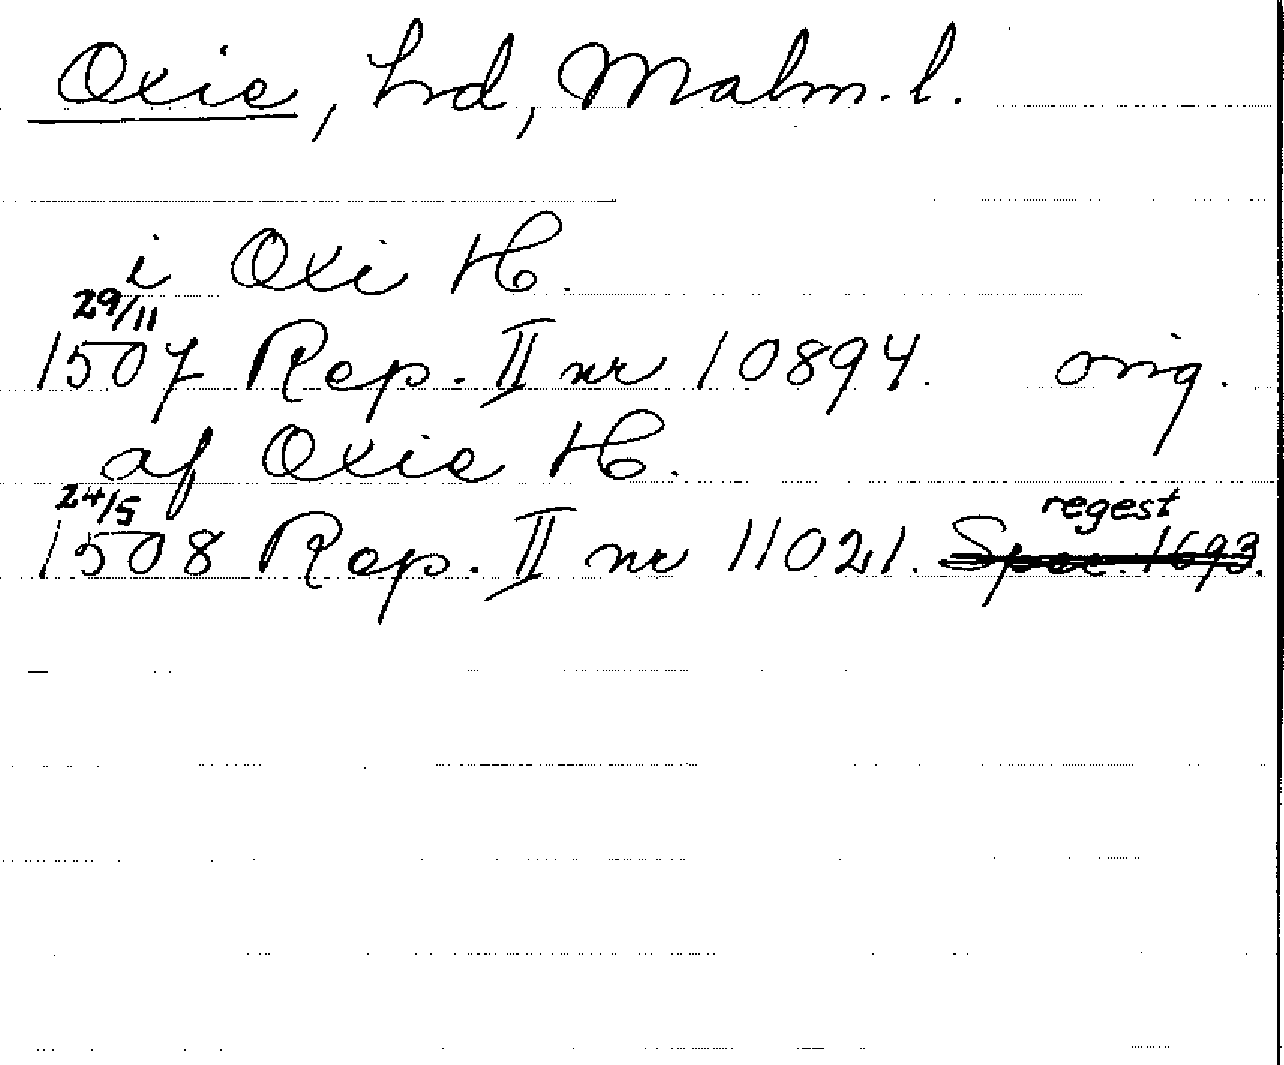 Oxie, hd, Malm. l.
i Oxi H.
29/11
1507 Rep. II nr 10894. orig.
af Oxie H.
24/5 regest
1508 Rep. II nr 11021. Spec. 1693.